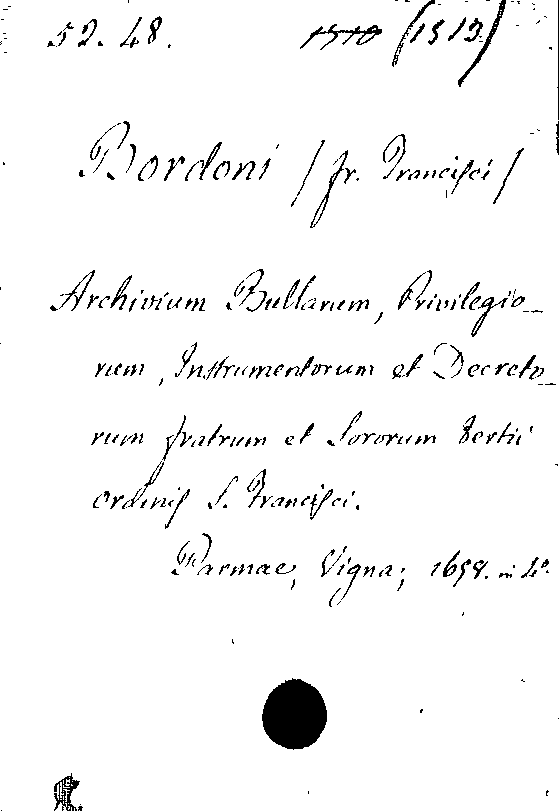 52. 48. 1510 (1513)
Bordoni / fr. Francisci /
Archivium Bullarum, Privilegio_
rum, Instrumentorum et Decreto_
rum fratrum et Sororum tertii
ordinis S. Francisci.
Parmae, Vigna; 1658. in 4º.